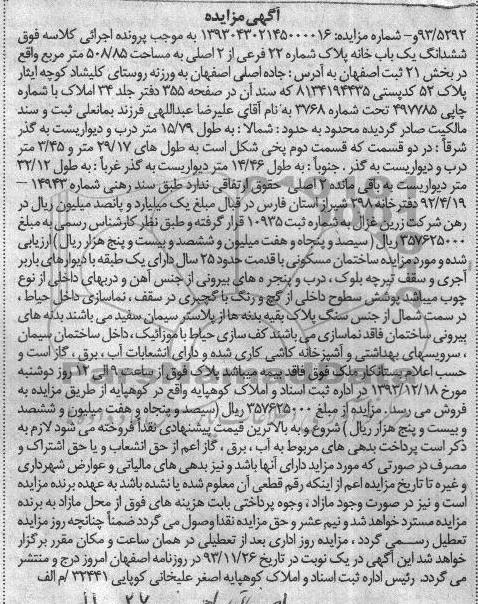 آگهی مزایده
۹۳/۵۲۹۲و– شماره مزایده: ۱۳۹۳۰۴۳۰۲۱۴۵۰۰۰۰۱۶ به موجب پرونده اجرائی کلاسه فوق
ششدانگ یک باب خانه پلاک شماره ۲۲ فرعی از ۲ اصلی به مساحت ۵۰۸/۸۵ متر مربع واقع
در بخش ۲۱ ثبت اصفهان به آدرس : جاده اصلی اصفهان به ورزنه روستای کلیشاد کوچه ایثار
پلاک ۵۲ کدپستی ۸۱۳۴۱۹۴۴۳۵ که سند آن در صفحه ۳۵۵ دفتر جلد ۳۴ املاک با شماره
چاپی ۴۹۷۷۸۵ تحت شماره ۳۷۶۸ به نام آقای علیرضا عبداللهی فرزند بمانعلی ثبت و سند
مالکیت صادر گردیده محدود به حدود : شمالا : به طول ۱۵/۷۹ متر درب و دیواریست به گذر
شرقاً : در دو قسمت که قسمت دوم پخی شکل است به طول های ۲۹/۱۷ متر و ۳/۴۵ متر
درب و دیواریست به گذر . جنوباً : به طول ۱۴/۴۶ متر دیواریست به گذر غرباً : به طول ۳۲/۱۲
متر دیواریست به باقی مانده ۲ اصلی حقوق ارتفاقی ندارد طبق سند رهنی شماره ۱۴۹۴۳ –
۹۲/۴/۱۹ دفترخانه ۳۹۸ شیراز استان فارس در قبال مبلغ یک میلیارد و پانصد میلیون ریال در
رهن شرکت زرین غزال به شماره ثبت ۱۰۹۳۵ قرار گرفته و طبق نظر کارشناس رسمی به مبلغ
۳۵۷۶۲۵۰۰۰ ریال ( سیصد و پنجاه و هفت میلیون و ششصد و بیست و پنج هزار ریال ) ارزیابی
شده و مورد مزایده ساختمان مسکونی با قدمت حدود ۲۵ سال دارای یک طبقه با دیوارهای باربر
آجری و سقف تیرچه بلوک ، درب و پنجره های بیرونی از جنس آهن و دربهای داخلی از نوع
چوب میباشد پوشش سطوح داخلی از گچ و رنگ با گچبری در سقف ، نماسازی داخل حیاط ،
در سمت شمال از جنس سنگ پلاک بقیه بدنه ها از پلاستر سیمان سفید می باشند بدنه های
بیرونی ساختمان فاقد نماسازی می باشند کف سازی حیاط با موزائیک ، داخل ساختمان سیمان
، سرویسهای بهداشتی و آشپزخانه کاشی کاری شده و دارای انشعابات آب ، برق ، گاز است و
حسب اعلام بستانکار ملک فوق فاقد بیمه میباشد پلاک فوق از ساعت ۹ الی ۱۲ روز دوشنبه
مورخ ۱۳۹۳/۱۲/۱۸ در اداره ثبت اسناد و املاک کوهپایه واقع در کوهپایه از طریق مزایده به
فروش می رسد. مزایده از مبلغ ۳۵۷۶۲۵۰۰۰ ریال (سیصد و پنجاه و هفت میلیون و ششصد
و بیست و پنج هزار ریال ) شروع و به بالاترین قیمت پیشنهادی نقداً فروخته می شود لازم به
ذکر است پرداخت بدهی های مربوط به آب ، برق ، گاز اعم از حق انشعاب و یا حق اشتراک و
مصرف در صورتی که مورد مزاید دارای آنها باشد و نیز بدهی های مالیاتی و عوارض شهرداری
و غیره تا تاریخ مزایده اعم از اینکه رقم قطعی آن معلوم شده یا نشده باشد به عهده برنده مزایده
است و نیز در صورت وجود مازاد ، وجوه پرداختی بابت هزینه های فوق از محل مازاد به برنده
مزایده مسترد خواهد شد و نیم عشر و حق مزایده نقدا وصول می گردد ضمناً چنانچه روز مزایده
تعطیل رسمی گردد ، مزایده روز اداری بعد از تعطیلی در همان ساعت و مکان مقرر برگزار
خواهد شد این آگهی در یک نوبت در تاریخ ۹۳/۱۱/۲۶ در روزنامه اصفهان امروز درج و منتشر
می گردد. رئیس اداره ثبت اسناد و املاک کوهپایه اصغر علیخانی کوپایی ۳۲۴۴۱ /م الف